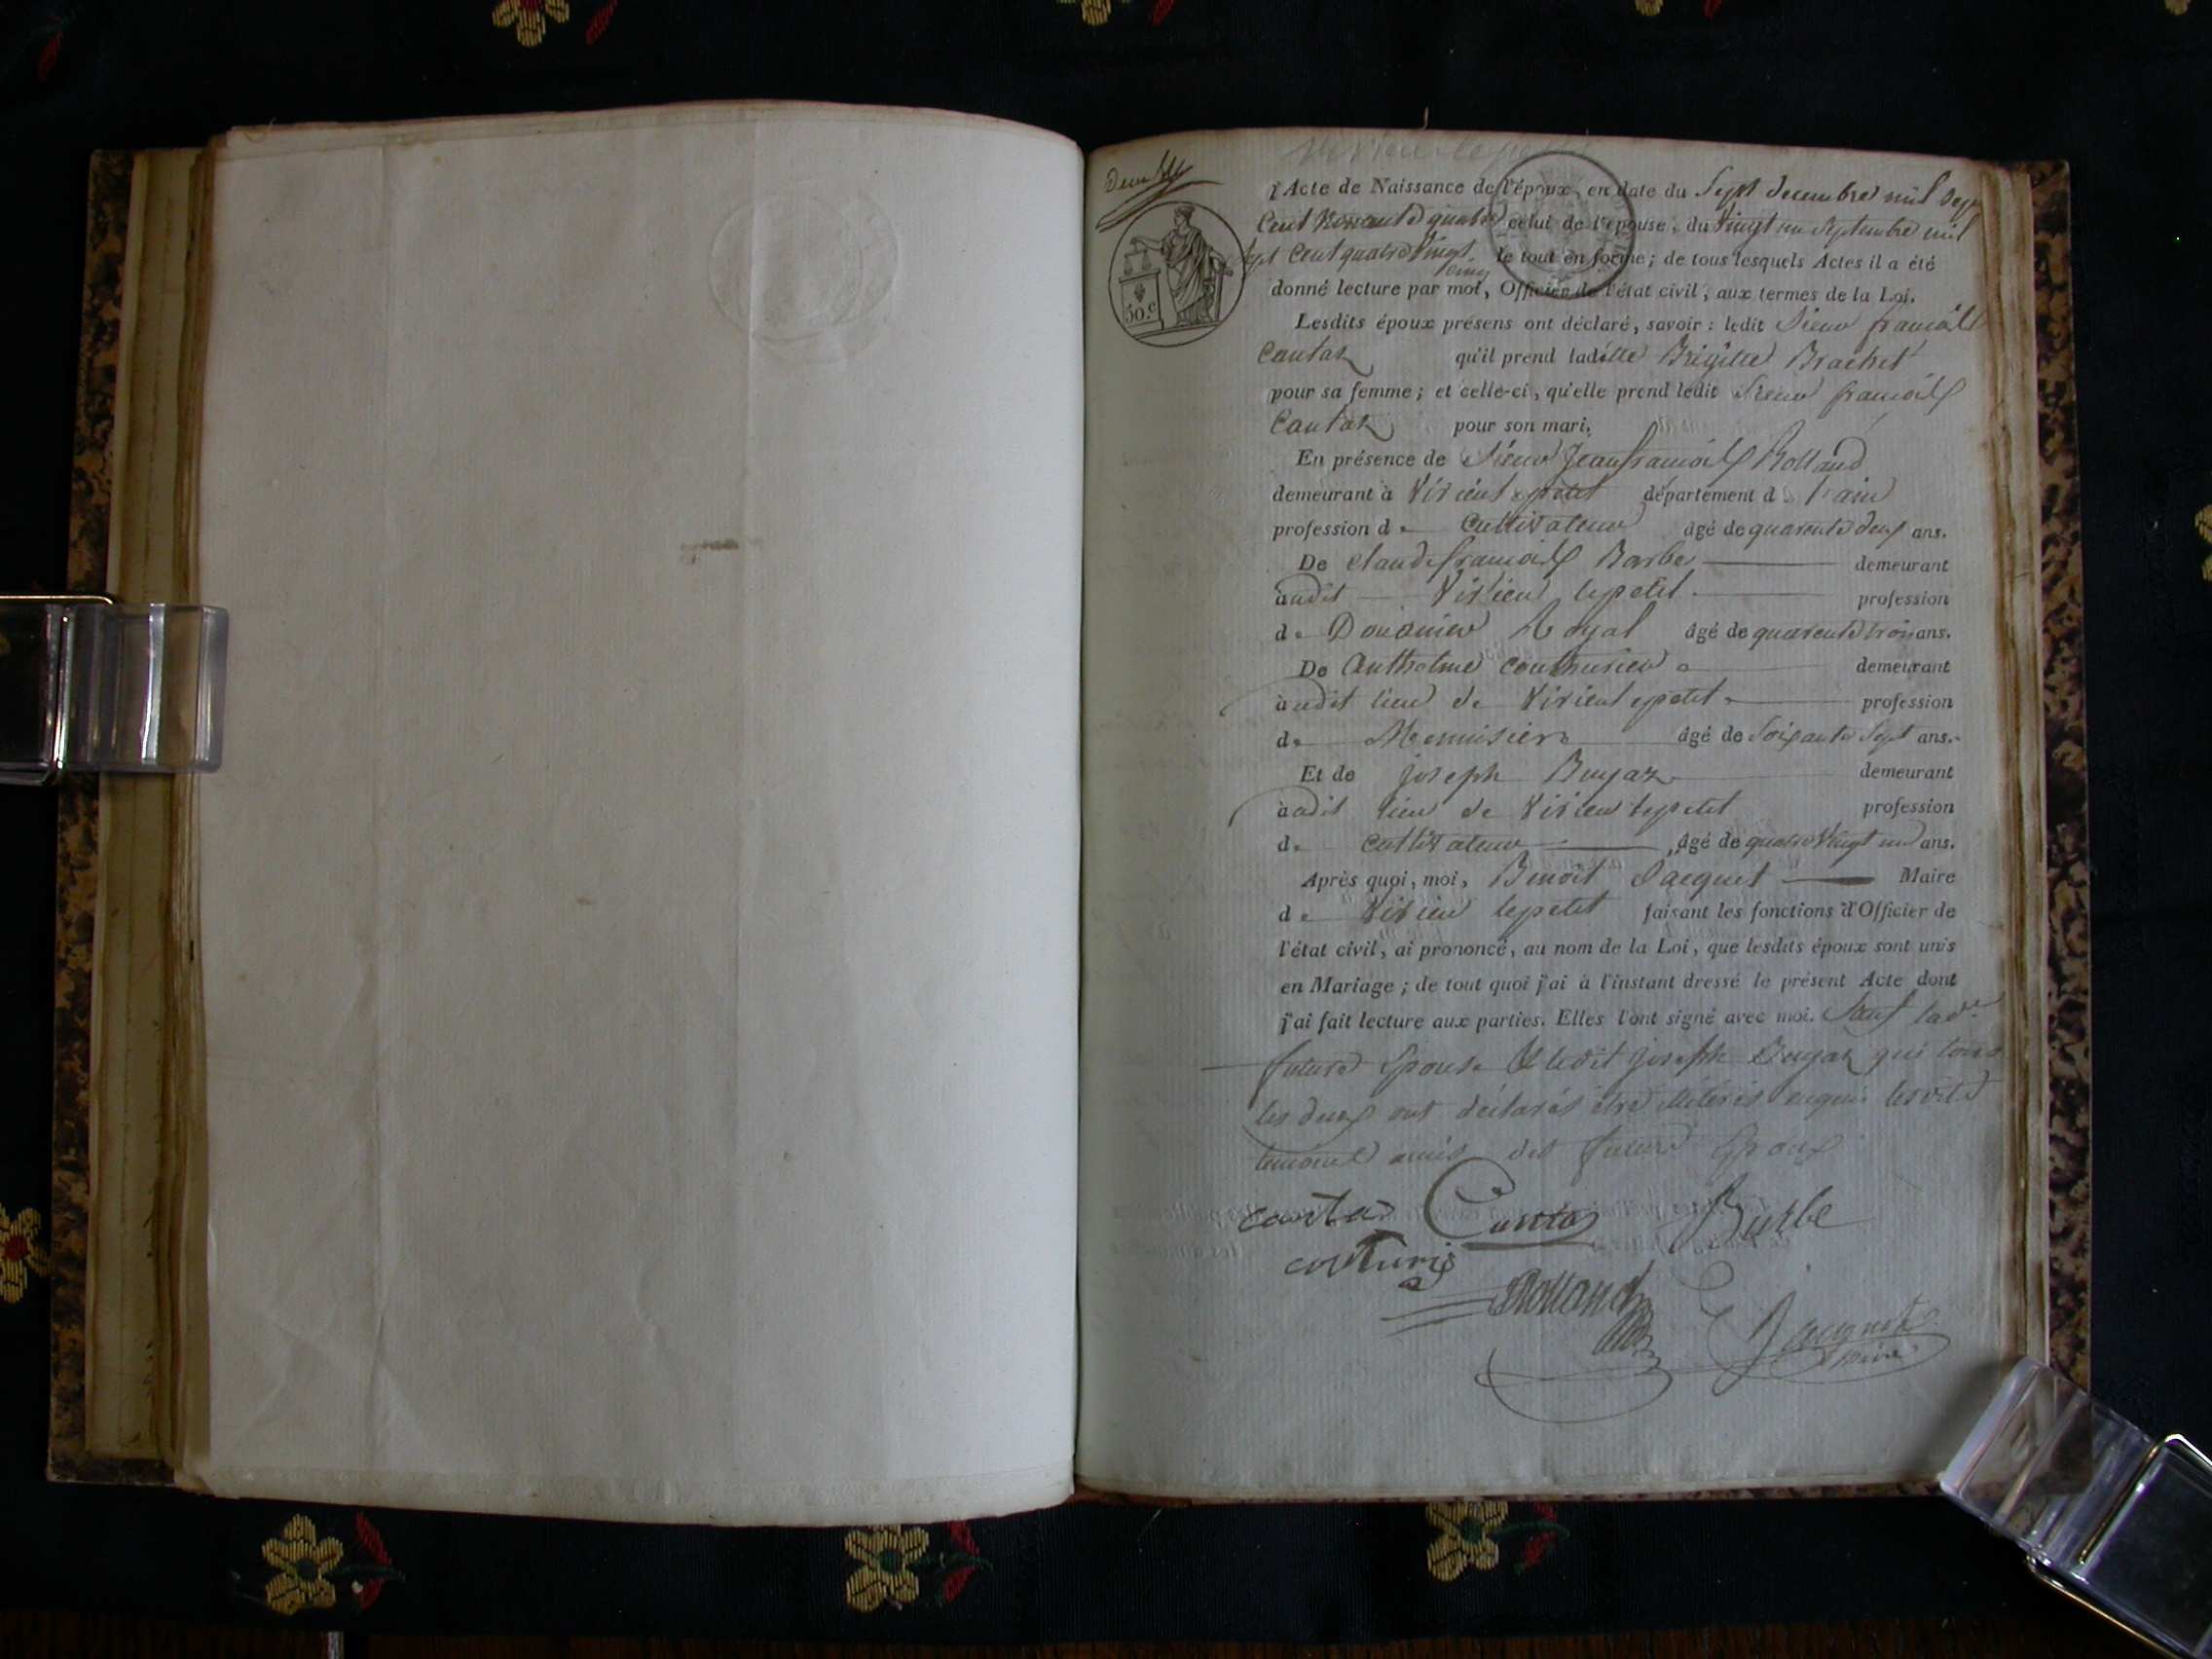 l'Acte de Naissance de l'époux, en date du Sept decembre mil Sept
Cent Nonante quatre celui de l'épouse, du Vingt un Septembre mil
Sept Cent quatre Vingt
cinq le tout en forme; de tous lesquels Actes il a été
50.c
donné lecture par moi, Officier de l'état civil, aux termes de la Loi.
Lesdits époux présens ont déclaré, savoir: ledit Sieur françois
Cantaz qu'il prend ladite Brigitte Brachet
pour sa femme; et celle-ci, qu'elle prend ledit Sieur françois
Cantaz pour son mari.
En présence de Sieur Jean françois Rolland
demeurant à Virieu le petit département de l'ain
profession de Cultivateur âgé de quarente deux ans.
De Claude françois Barbe demeurant
audit Virieu le petit profession
de Douanier Royal âgé de quarente trois ans.
De Anthelme Couthurier demeurant
audit lieu de Virieu le petit profession
de Menuisier âgé de Soixante Sept ans.
Et de joseph Bugaz demeurant
audit lieu de Virieu le petit profession
de Cultivateur âgé de quatre Vingt un ans.
Après quoi, moi, Benoit Jacquet Maire
de Virieu le petit faisant les fonctions d'Officier de
l'état civil, ai prononcé, au nom de la Loi, que lesdits époux sont unis
en Mariage; de tout quoi j'ai à l'instant dressé le présent Acte dont
j'ai fait lecture aux parties. Elles l'ont signé avec moi. Sauf lad.e
future Epouse & ledit joseph Bugaz qui tous
les deux ont déclarés être illiterés
temoins amis des futurs Epoux
canta Canta Burbe
couturié
Rolland
Jacquet
maire